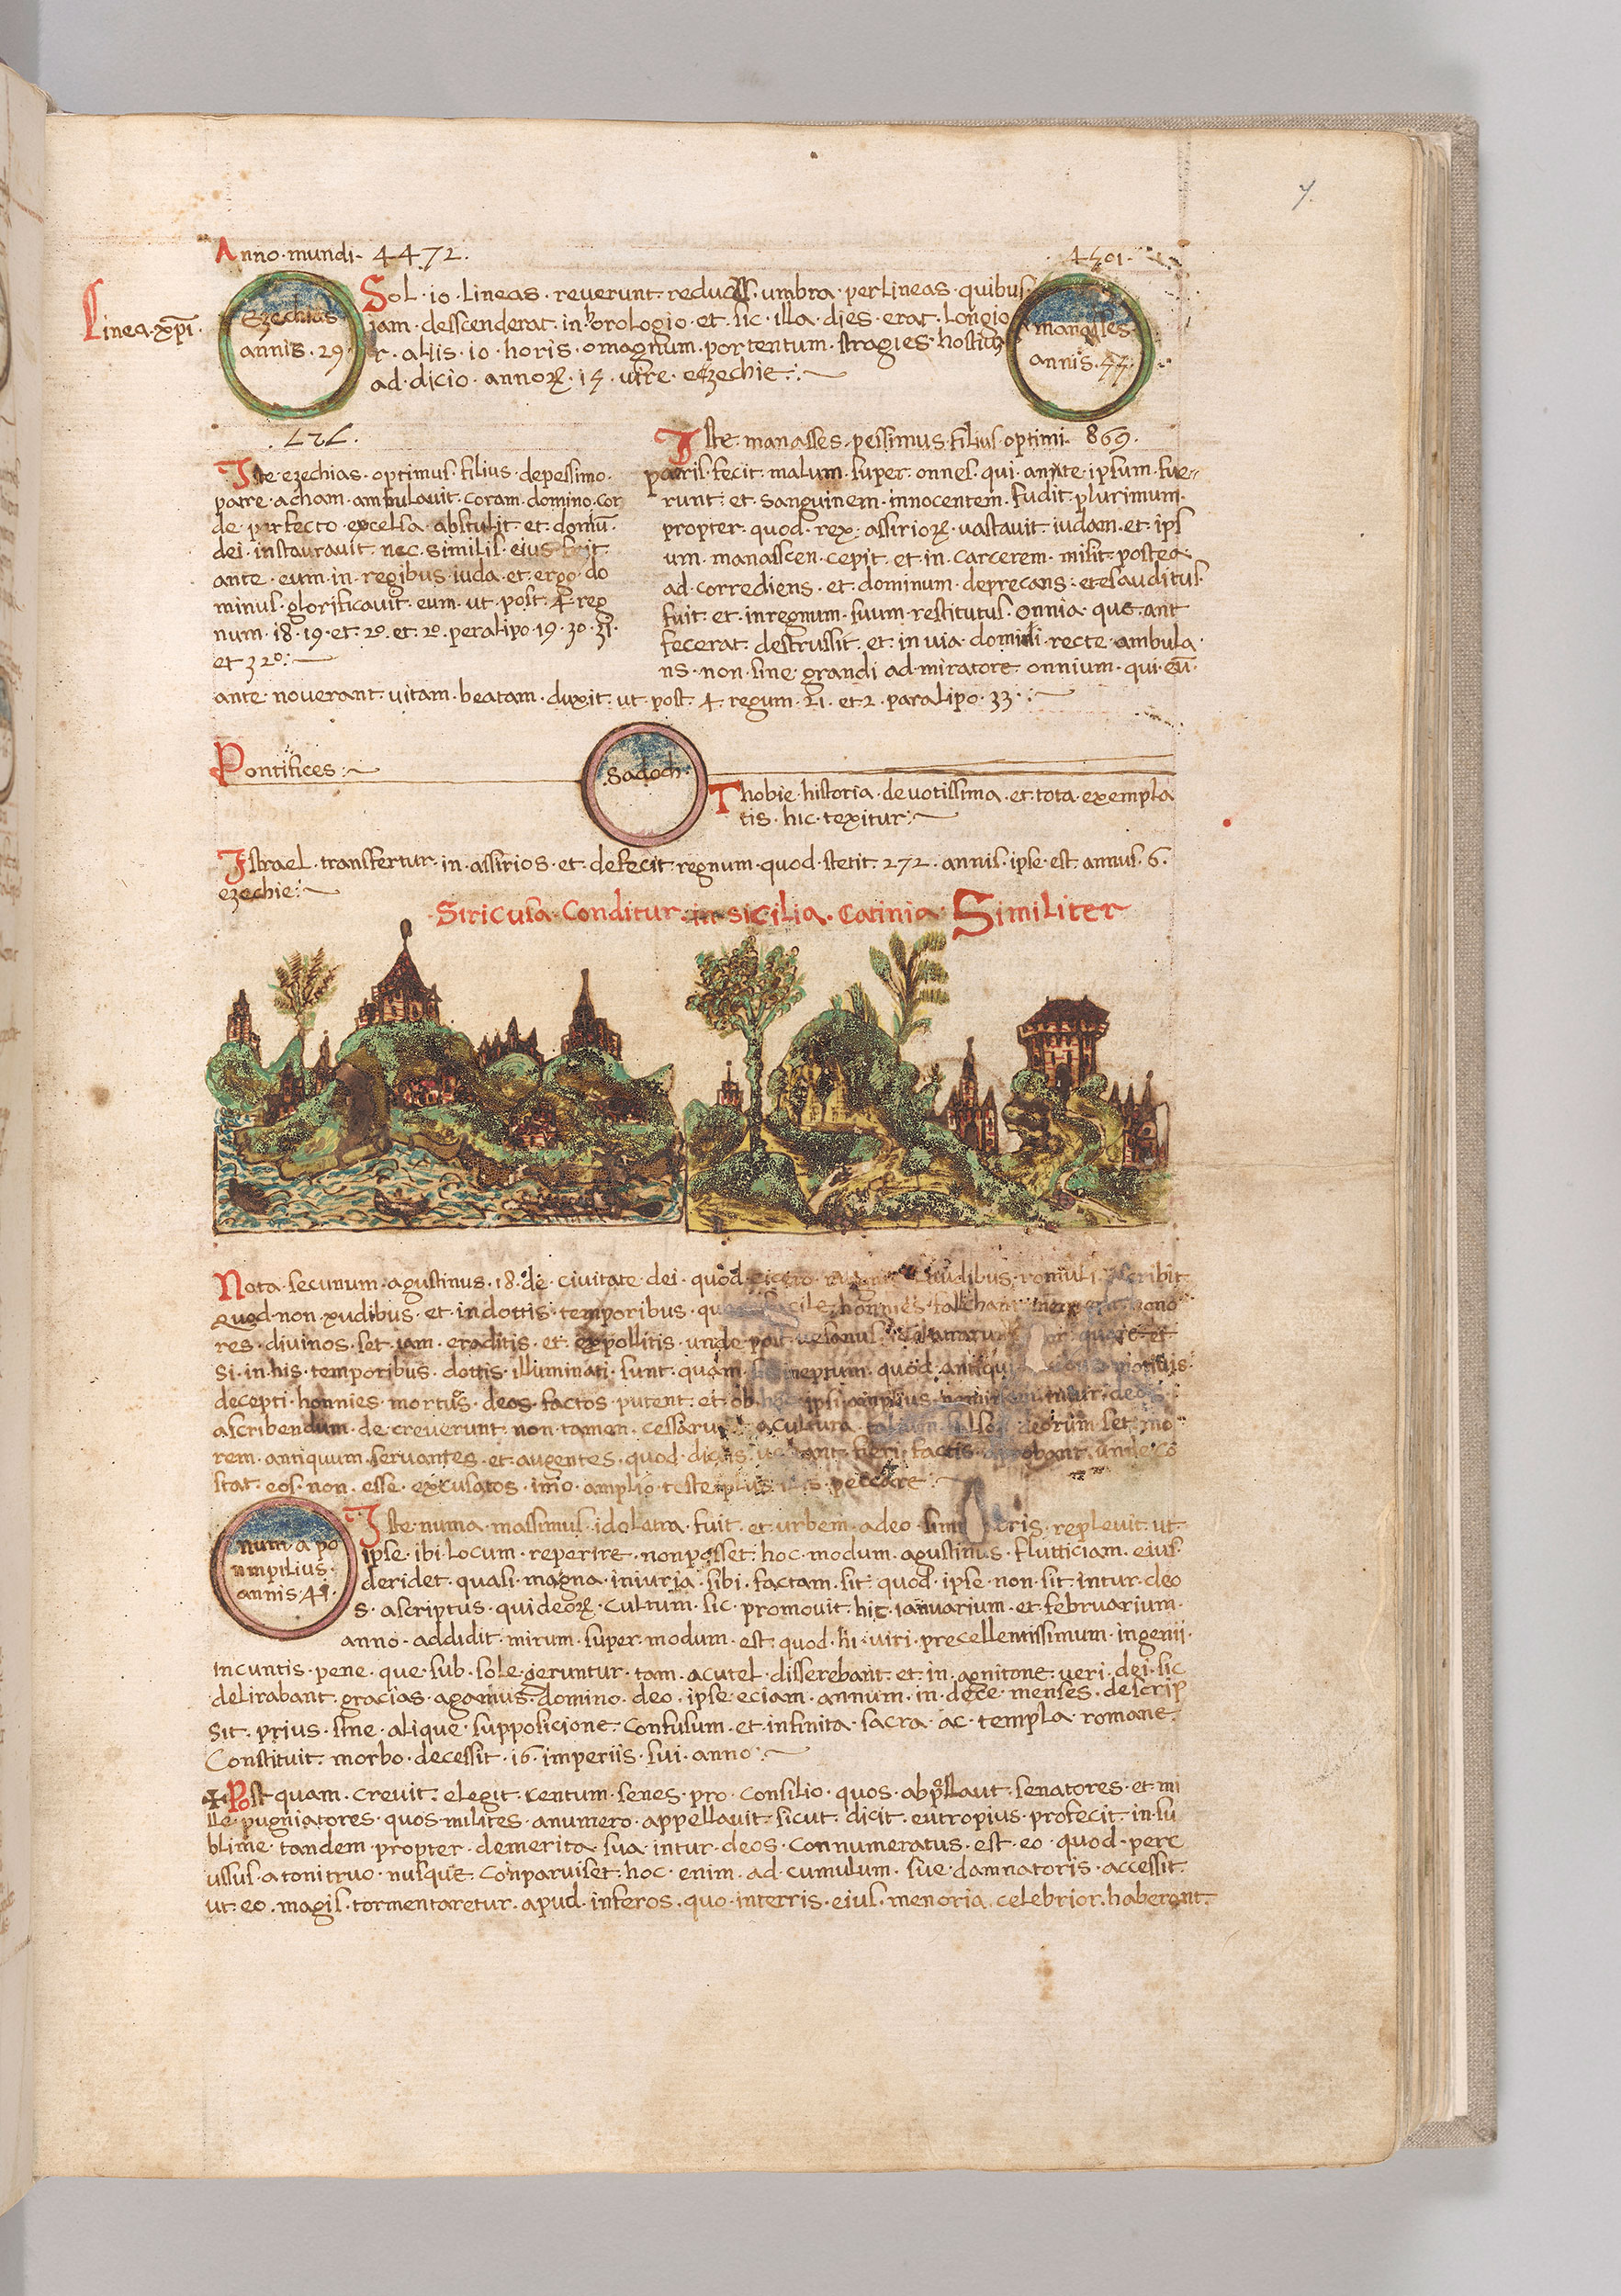 7.
Anno · mundi · 4472 ·
· 4501 ·
Linea · xpi ·
Ezechias
annis · 29 ·
Sol · io · lineas · reverunt · umbra · per lineas · quibus
iam · desscenderat · in horologio · et · sic · illa · dies · erat · longio
r · aliis · io · horis · o magnum · portentum · stragies · hostium
ad · dicio · annoꝝ · 15 · ezechie :~
manasses
annis · 55 ·
· 727 ·
Iste · ezechias · optimus · filius · depessimo ·
patre · acham · ambulavit · coram · domino · cor
de · perfecto · excelsa · abstulit · et · domū ·
dei · instauravit · nec · similis · eius · fuit ·
ante · eum · in · regibus · iuda · et · ergo · do
minus · glorificavit · eum · ut · post · 4 · reg
num · 18 · 19 · et · 20 · et · 2o · peralipo · 19 · 30 · 31 ·
et 32o :~
Iste · manasses · pessimus · filius · optimi · 869 ·
patris · fecit · malum · super · onnes · qui · annte · ipsum · fue
runt · et · sanguinem · innocentem · fudit · plurimum ·
propter · quod · rex · assirioꝝ · vastavit · iudam · et · ips
um · manasscen · cepit · et · in · carcerem · misit · postea ·
ad · corrediens · et · dominum · deprecans · et esauditus ·
fuit · et · inregnum · suum · restitutus · onnia · que · ant
fecerat · destrussit · et · in via · domini · recte · ambula ·
ns · non · sine · grandi · ad · miratore · onnium · qui · eū ·
ante · noverant · vitam · beatam · duxit · ut · post · 4 · regum · 21 · et · 2 · paralipo · 33 · :~
Pontifices :~
· Sadoch ·
Thobie · historia · devotissima · et · tota · exempla
tis · hic · texitur :~
Istrael · transfertur · in · assirios · et · defecit · regnum · quod · stetit · 272 · annis · ipse · est · annus · 6 ·
ezechie :~
· Siricusa · Conditur · in · sicilia · Catinia · Similiter
Nota · secunum · agustinus · 18 · de · civitate · dei · quod · cicero · laudibus · romuli · scribit
quod · non · rudibus · et · indottis · temporibus · facile · honnies
res · divinos · set · iam · eraditis · et · expollitis · unde
si · in · his · temporibus · dottis · illuminati · sunt · quam · ineptum · quod · antiqui
decepti · honnies · mortuos · deos · factos · putent · et · ob · ipsi · amplius
ascribendum · de · creverunt · non · tamen · cessarunt · a cultura · deorum · set · mo
rem · antiquum · servantes · et · augentes · quod · fieri · factis · unde · co
stat · eos · non · esse · excusatos · imo · amplio · teste · peccare :~
num · a po
mpilius ·
annis · 41 ·
Iste · numa · massimus · idolatra · fuit · et · urbem · adeo · replevit · ut ·
ipse · ibi · locum · reperire · non posset · hoc · modum · agustinus · flutticiam · eius ·
deridet · quasi · magna · iniuria · sibi · factam · sit · quod · ipse · non · sit · intur · deo
s · ascriptus · qui deoꝝ · cultum · sic · promovit · hic · ianuarium · et · februarium ·
anno · addidit · mirum · super · modum · est · quod · hi · viri · precellentissimum · ingenii ·
incuntis · pene · que · sub · sole · geruntur · tam · acutel · disserebant · et · in · agnitone · veri · dei · sic
delirabant · gracias · agamus · domino · deo · ipse · eciam · annum · in · dece · menses · descrip
sit · prius · sine · alique · supposicione · confusum · et · infinita · sacra · ac · templa · romane ·
Constituit · morbo · decessit · 16 · imperiis · sui · anno :~
Post quam · crevit · elegit · centum · senes · pro · consilio · quos · senatores · et · mi
lle · pugniatores · quos · milites · anumero · appellavit · sicut · dicit · eutropius · profecit · in · su
blime · tandem · propter · demerita · sua · intur · deos · connumeratus · est · eo · quod · perc
ussus · a tonitruo · nusque · conparuiset · hoc · enim · ad · cumulum · sue · damnatoris · accessit ·
ut · eo · magis · tormentaretur · apud · inferos · quo · interris · eius · menoria · celebrior · haberent ·